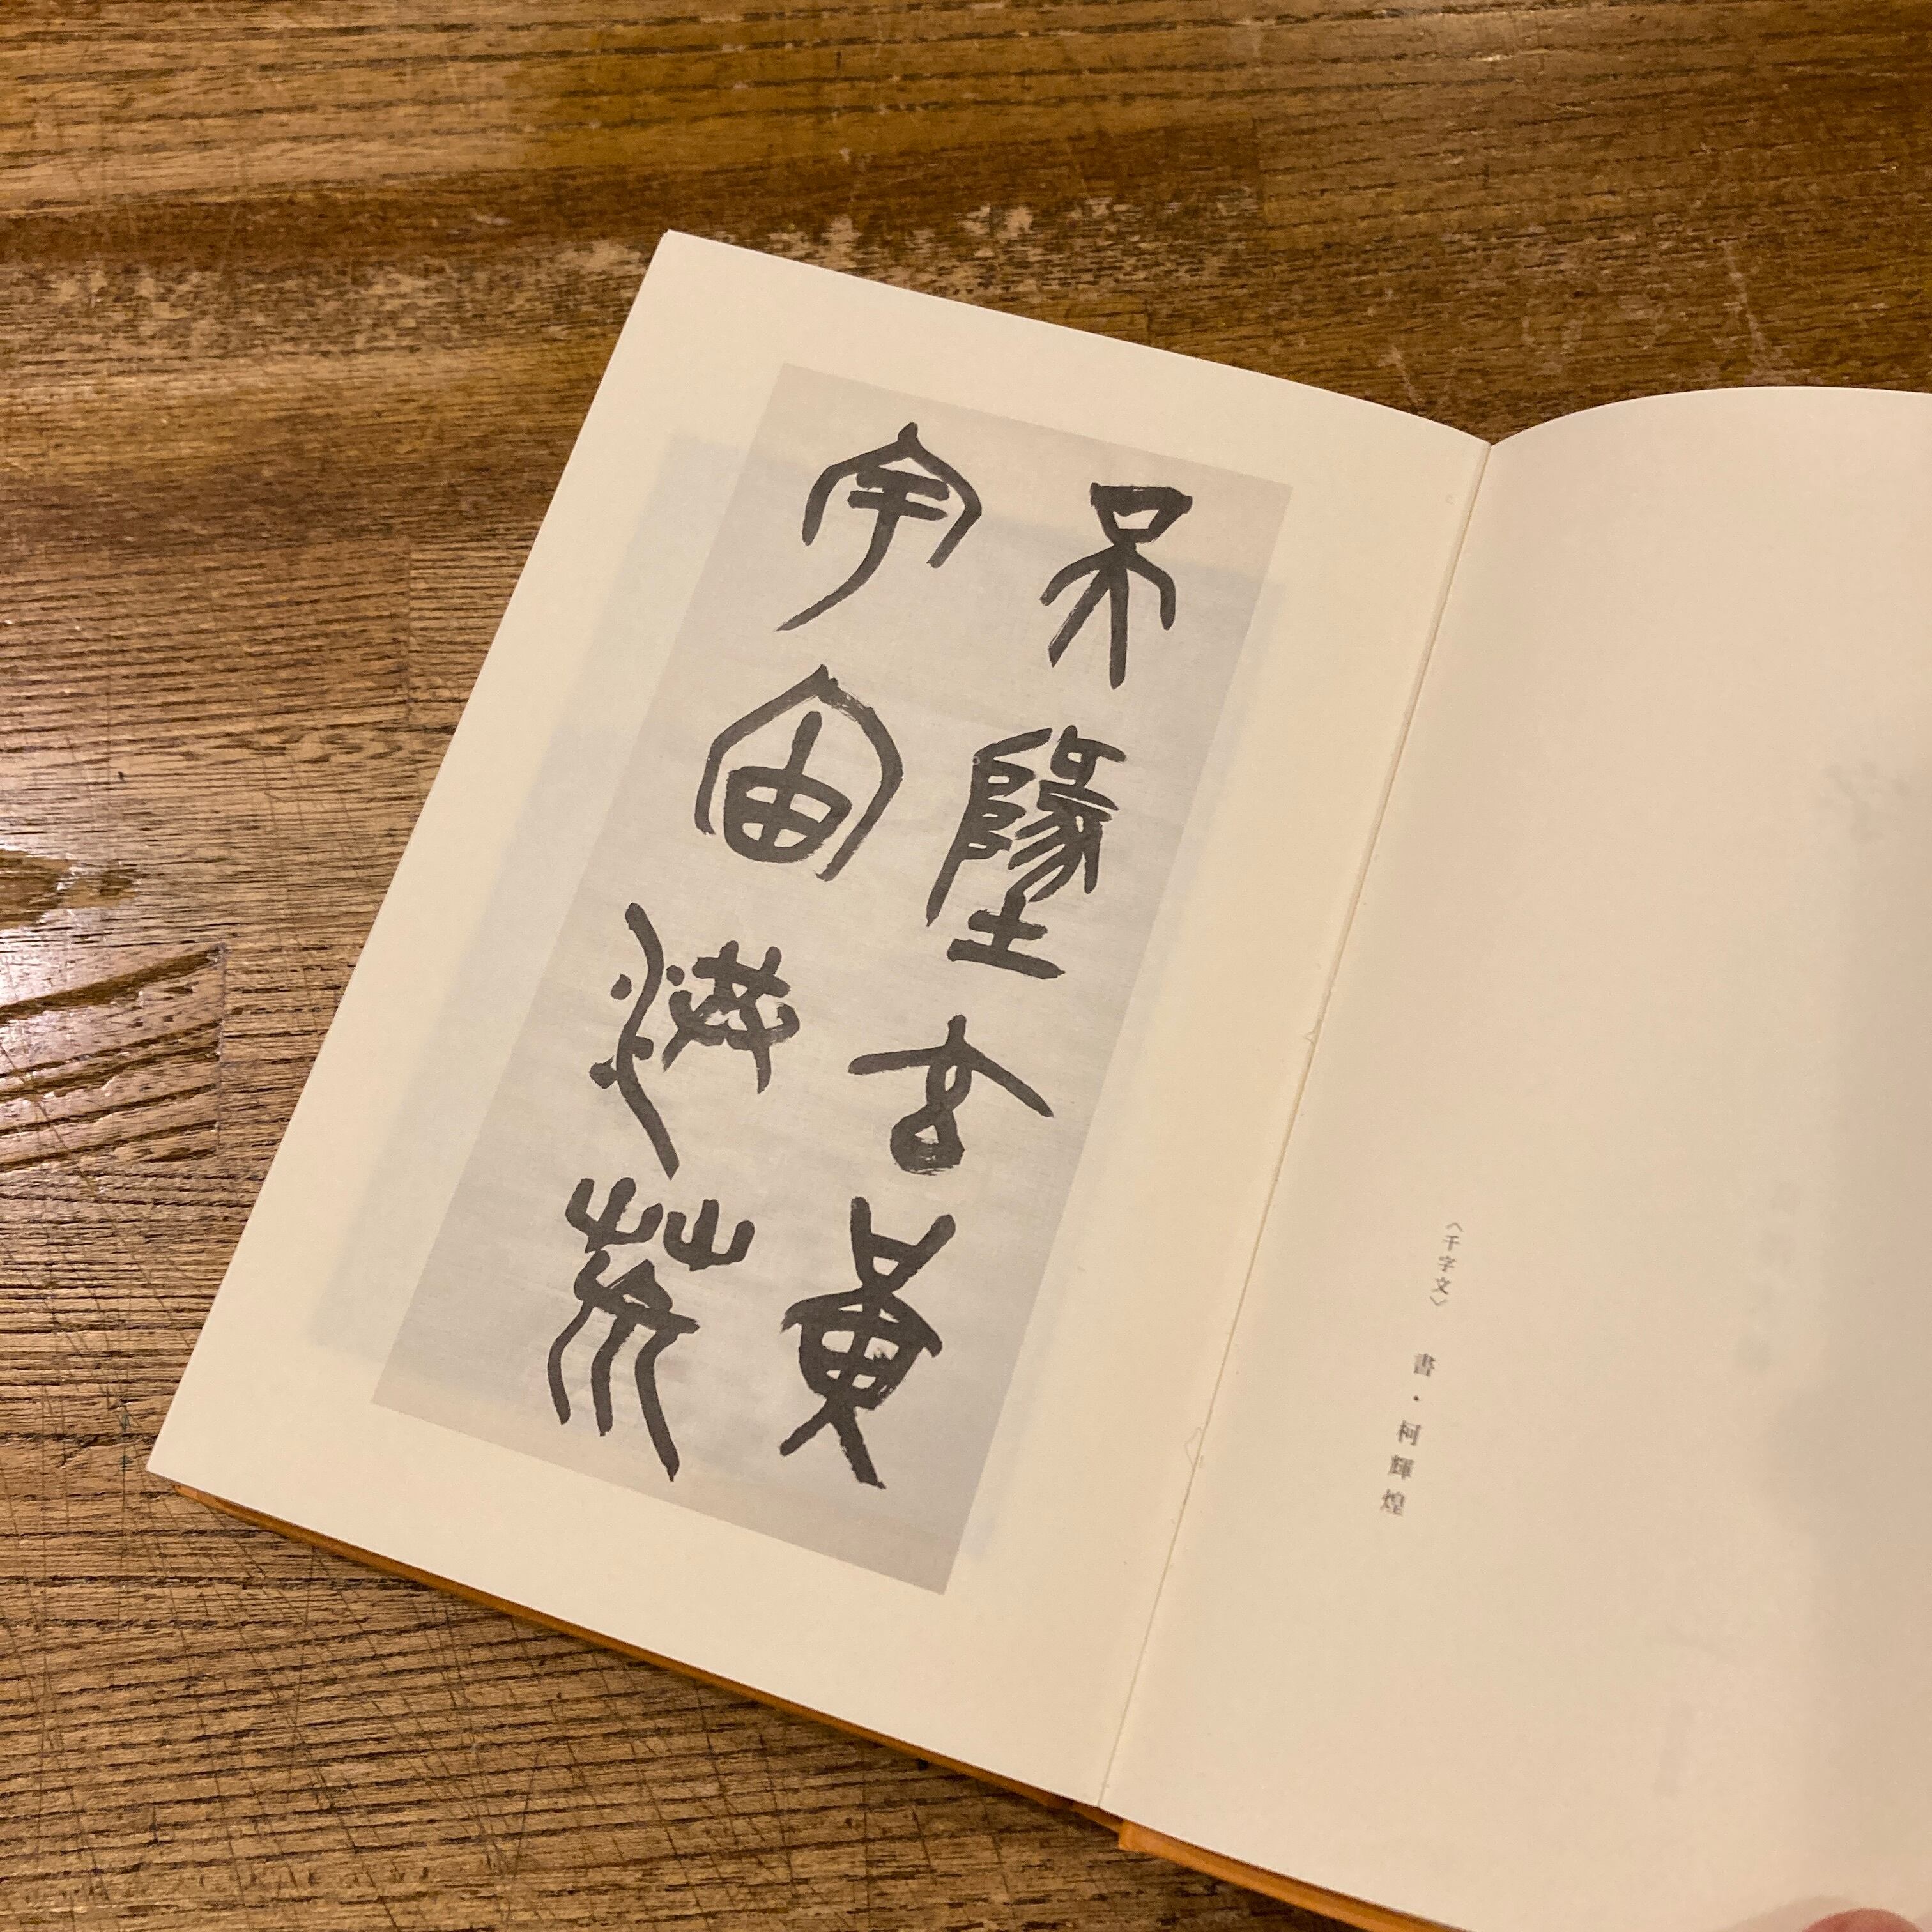 〈千字文〉 書・柯輝煌
天墬玄黃
宇宙洪荒